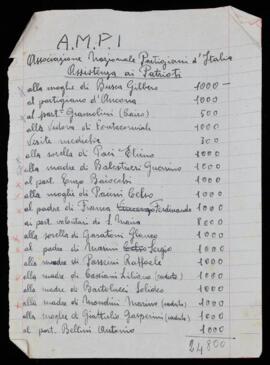 A.M.P.I
Associazione Nazionale Partigiani d'Italia
Assistenza ai Patrioti
alla moglie di Busca Gilbero 1000
al partigiano d'Ancona 1000
al part. Gramolini (Cairo) 500
alla vedova di Fontecorniale 1000
Visita medicha 300
alla sorella di Paci Elimo 1000
alla madre di Balestrieri Guerrino 1000
al part. Enzo Baiocchi 1000
alla moglie di Pacini Celso 1000
al padre di Franca Ferdinando 1000
ai part. volontari di S. Maria 8000
alla sorella di Garattoni Glauco 1000
al padre di Marini Sergio 1000
alla madre di Jasseni Raffaele 1000
alla madre di Cassiani Liliano (caduto) 1000
alla madre di Bartolucci Solideo 1000
alla madre di Mondini Marino (caduto) 1000
alla moglie di Giattilio Gasperini (caduto) 1000
al part. Bellini Antonio 1000
24,800